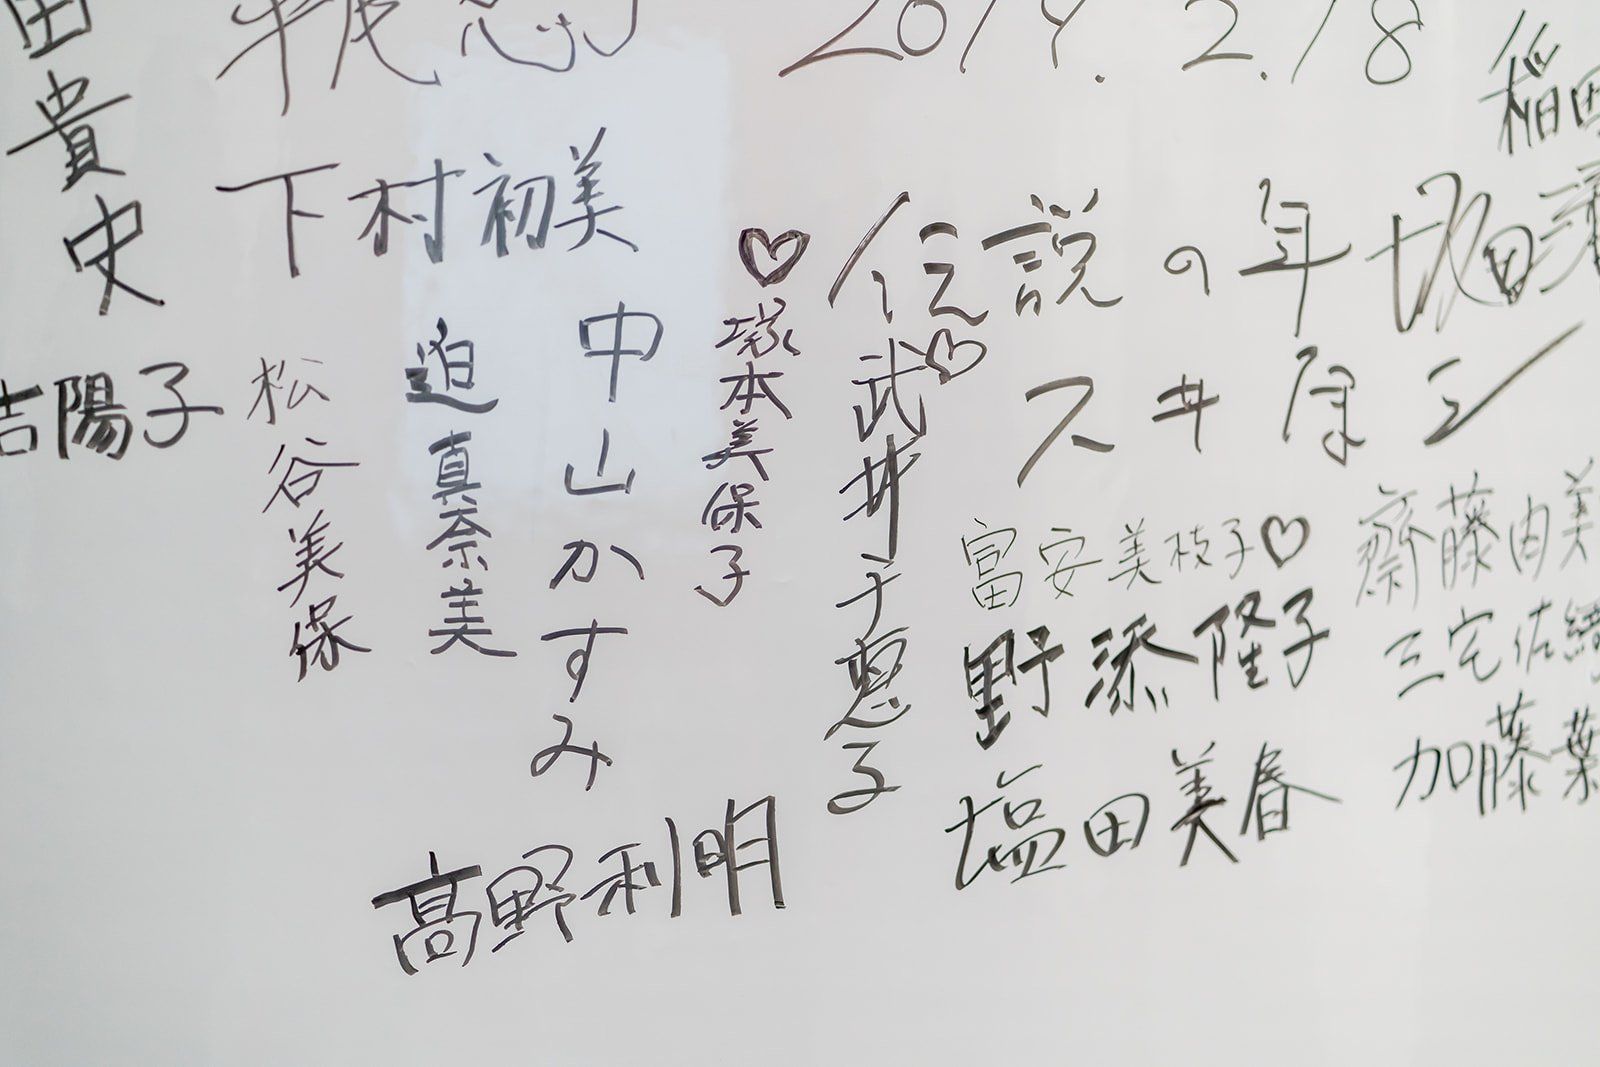 2019.2.18
田貴史
下村初美
伝説の年
吉陽子
松谷美保
迫真奈美
中山かすみ
塚本美保子
武井千恵子
富安美枝子
野添隆子
塩田美春
齋藤由美
三宅佐
加藤葉
高野利明
稲田